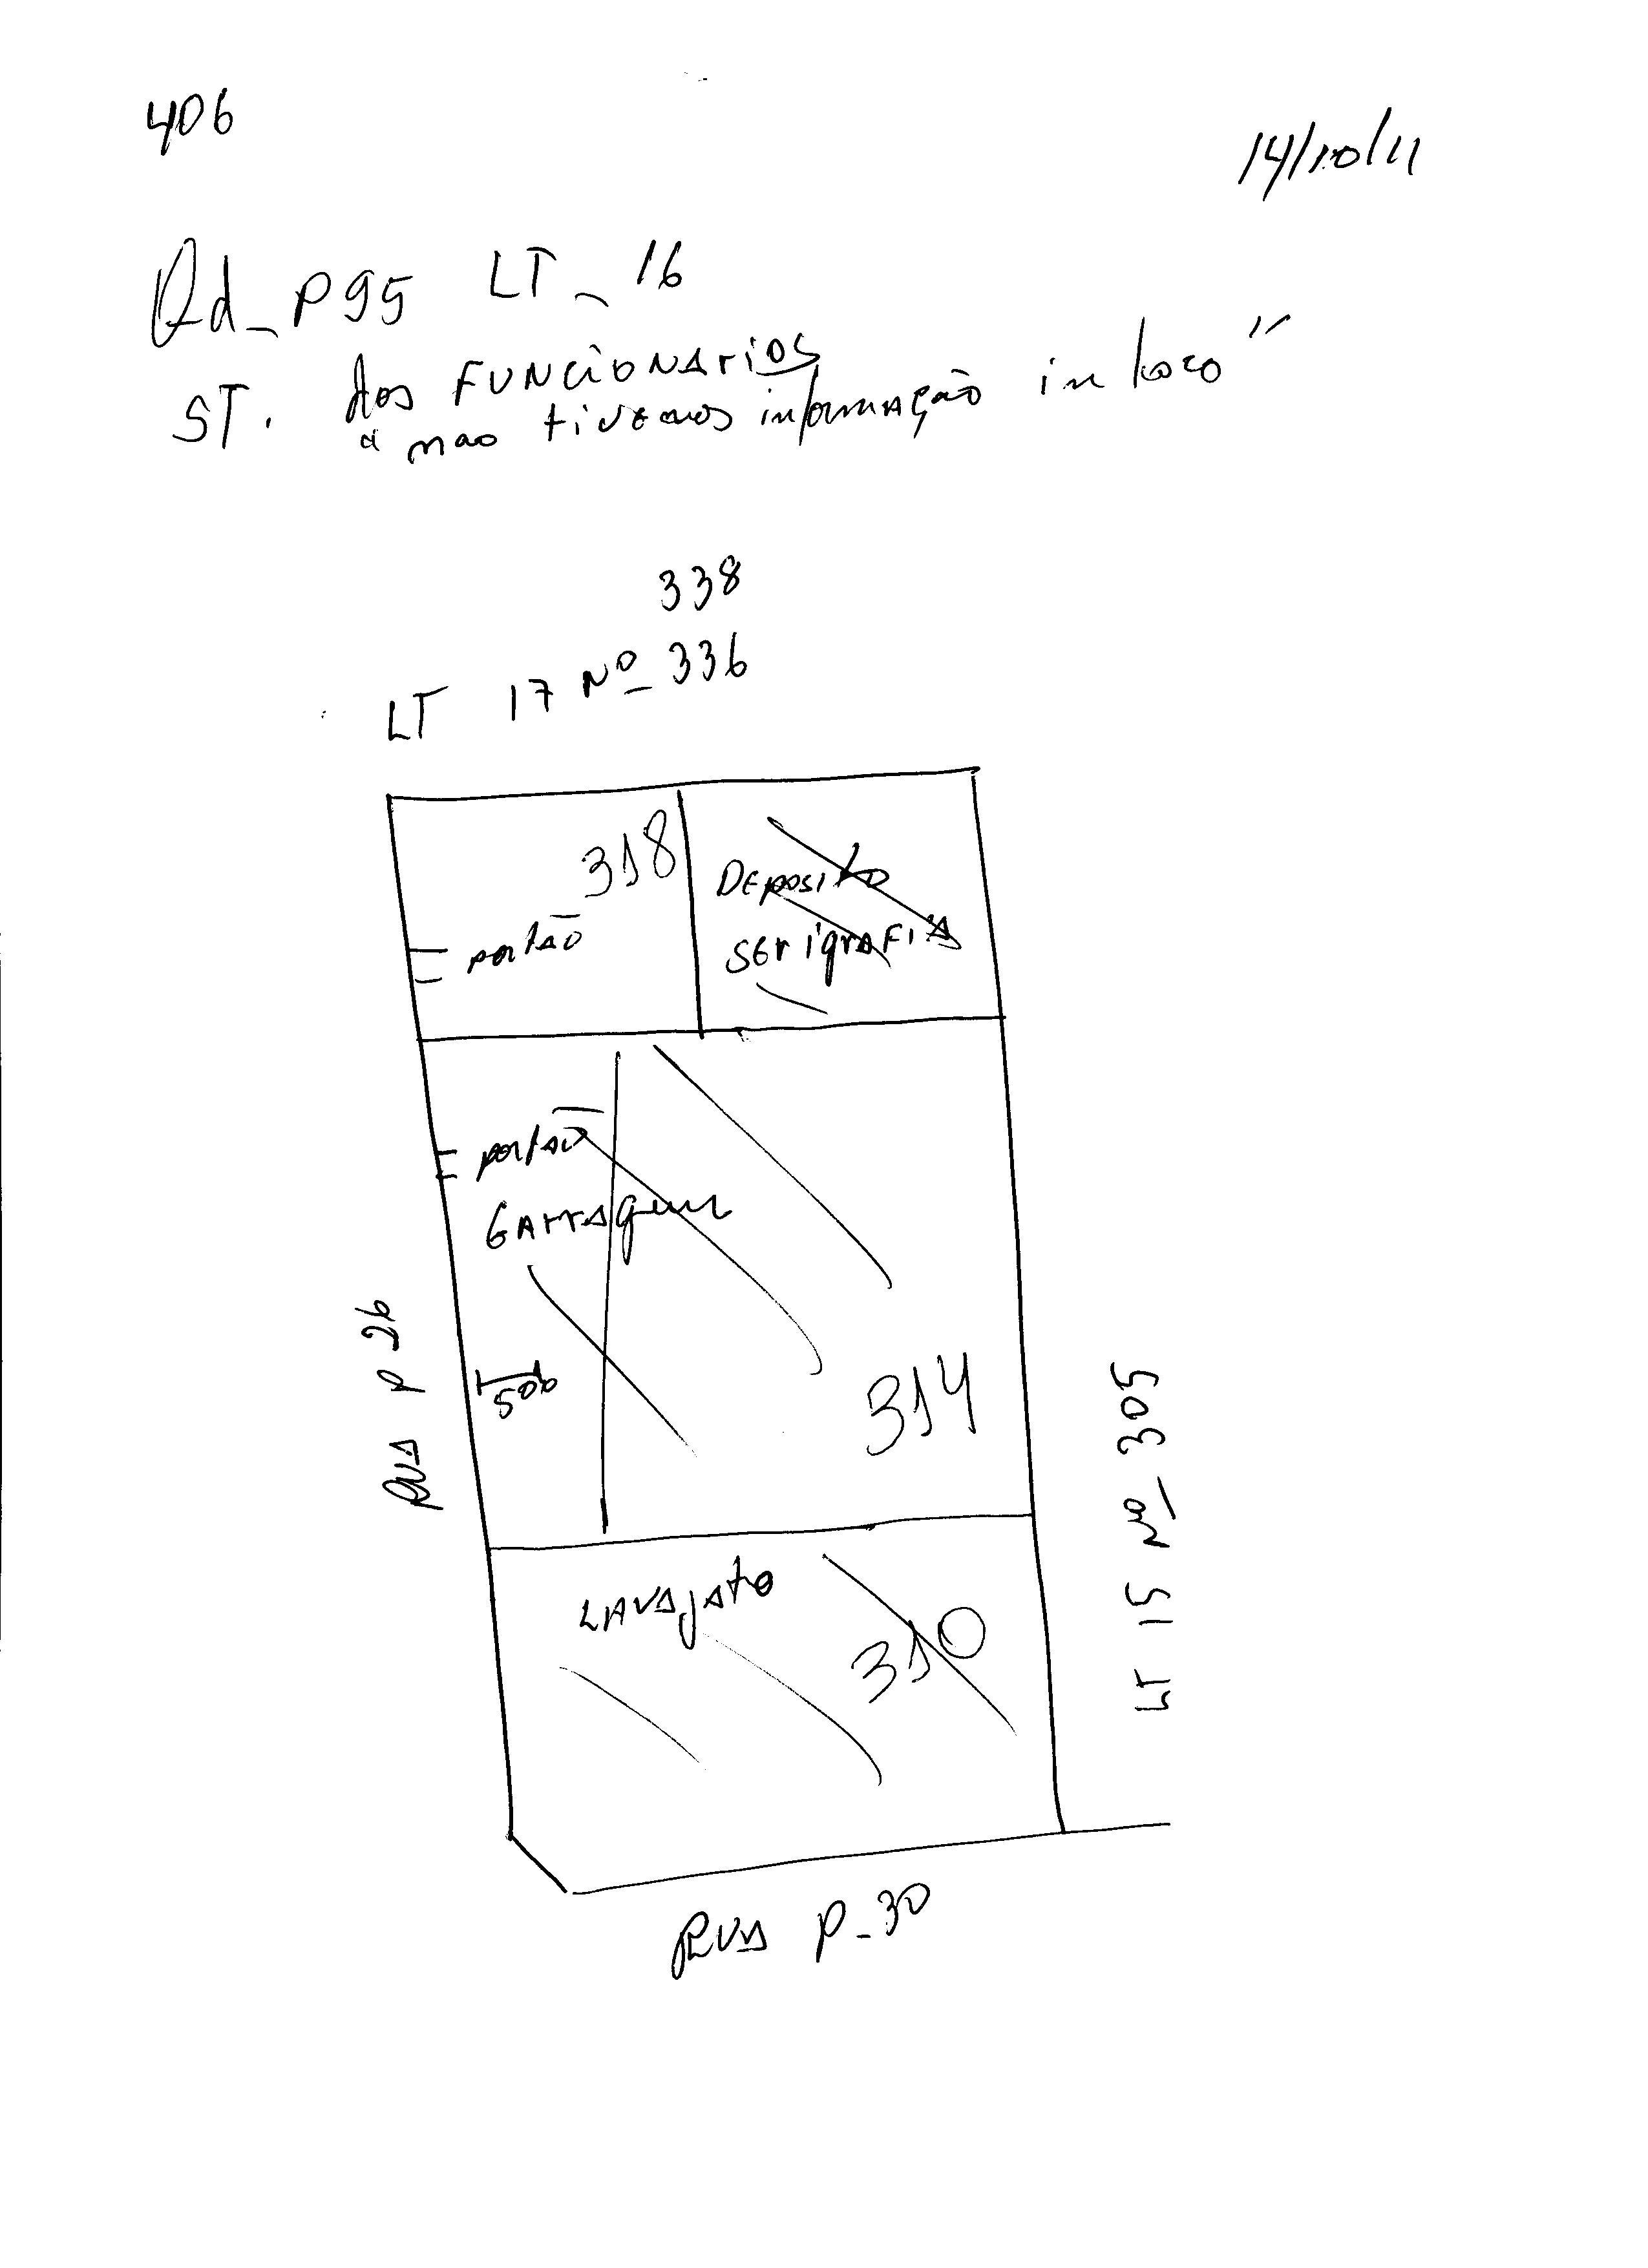 406
14/10/11
Qd_P95 LT_16
ST. dos FUNCIONARIOS
"não tivemos informação in loco"
338
LT 17 Nº 336
318
portão
DEposito
SErigrAFiA
portão
GArragem
500
314
RUA P 26
LT 15 Nº 305
LAVAjAto
310
RUA P_30